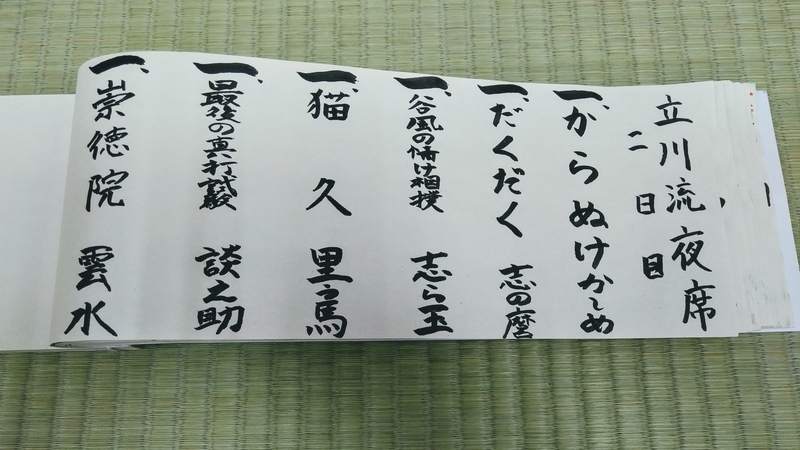 立川流夜席
二日目
一、からぬけ かしめ
一、だくだく 志の麿
一、谷風の情け相撲 志ら玉
一、猫久 里う馬
一、最後の真打試験 談之助
一、崇徳院 雲水